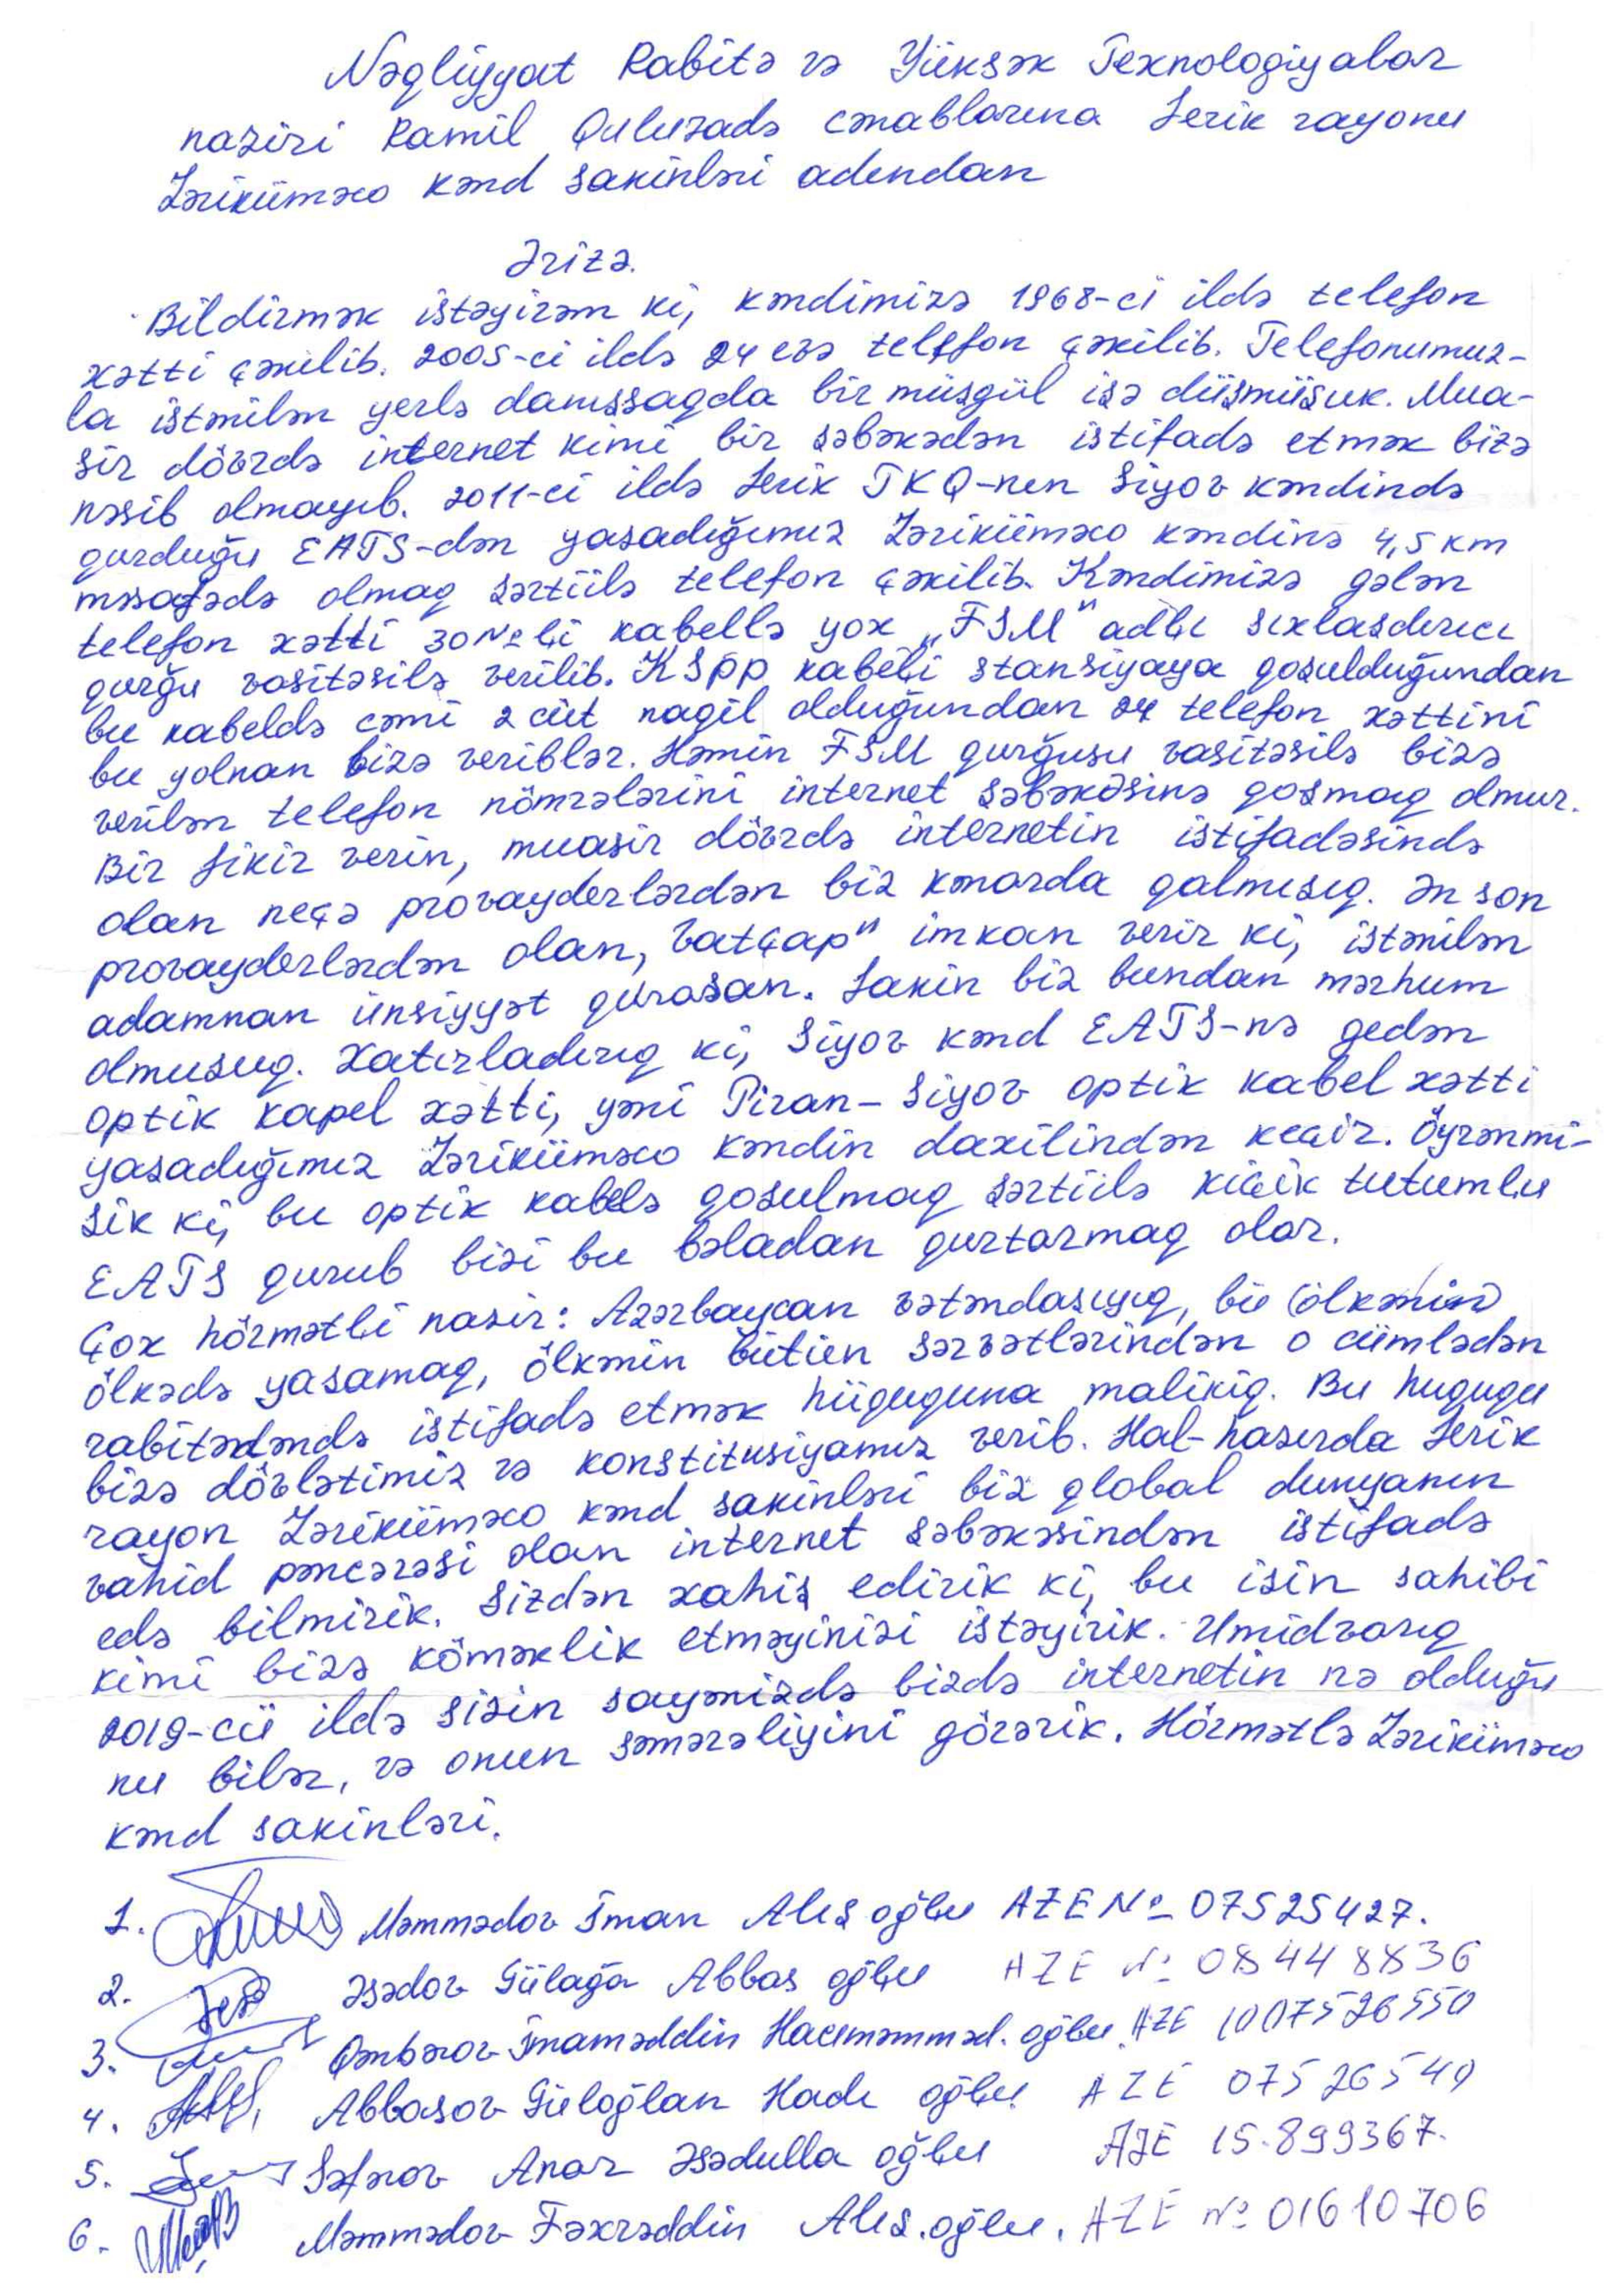 Nəqliyyat Rabitə və Yüksək Texnologiyalar
naziri Ramil Quluzadə cənablarına Lerik rayonu
Zəriküməco kənd sakinləri adından
Ərizə.
Bildirmək istəyirəm ki, kəndimizə 1968-ci ildə telefon
xətti çəkilib. 2005-ci ildə 24 evə telefon çəkilib. Telefonumuz-
la istənilən yerlə danışsaqda bir müşgül işə düşmüşuk. Mua-
sir dövrdə internet kimi bir şəbəkədən istifadə etmək bizə
nəsib olmayıb. 2011-ci ildə Lerik TKQ-nın Siyov kəndində
qurduğu EATS-dən yaşadığımız Zəriküməco kəndinə 4,5 km
məsafədə olmaq şərtülə telefon çəkilib. Kəndimizə gələn
telefon xətti 30 № li kabellə yox „FSM" adlı sıxlaşdırıcı
qurğu vasitəsilə verilib. KSpp kabeli stansiyaya qoşulduğundan
bu kabeldə cəmi 2 cüt nagil olduğundan 24 telefon xəttini
bu yolnan bizə veriblər. Həmin FSM qurğusu vasitəsilə bizə
verilən telefon nömrələrini internet şəbəkəsinə qoşmaq olmur.
Bir fikir verin, muasir dövrdə internetin istifadəsində
olan neçə provayderlərdən biz kənarda qalmışıq. Ən son
provayderlərdən olan, Vatçap" imkan verir ki, istənilən
adamnan ünsiyyət qurasan. Lakin biz bundan mərhum
olmuşuq. Xatırladırıq ki, Siyov kənd EATS-nə gedən
optik kapel xətti, yəni Piran-Siyov optik kabel xətti
yaşadığımız Zəriküməco kəndin daxilindən keçir. Öyrənmi-
şik ki, bu optik kabelə qoşulmaq şərtülə kiçik tutumlu
EATS qurub bizi bu bəladan qurtarmaq olar.
Çox hörmətli nazir: Azərbaycan vətəndaşıyıq, bu (ölkənin)
ölkədə yaşamaq, ölkənin bütün sərvətlərindən o cümlədən
rabitədəndə istifadə etmək hüququna malikiq. Bu huququ
bizə dövlətimiz və konstitusiyamız verib. Hal-hazırda Lerik
rayon Zəriküməco kənd sakinləri biz qlobal dunyanın
vahid pəncərəsi olan internet şəbəkəsindən istifadə
edə bilmirik. Sizdən xahiş edirik ki, bu işin sahibi
kimi bizə köməklik etməyinizi istəyirik. Umidvarıq
2019-cü ildə sizin sayənizdə bizdə internetin nə olduğu
nu bilər, və onun səmərəliyini görərik. Hörmətlə Zəriküməco
kənd sakinləri.
1. Məmmədov İman Alış oğlu AZE № 07525427.
2. Əsədov Gülağa Abbas oğlu AZE № 08448836
3. Qənbərov İmaməddin Hacıməmməd. oğlu. AZE 1007526550
4. Abbasov Güloğlan Hadı oğlu AZE 07526549
5. Səfərov Anar Əsədulla oğlu AZE 15.899367.
6. Məmmədov Fəxrəddin Alış.oğlu. AZE № 01610706